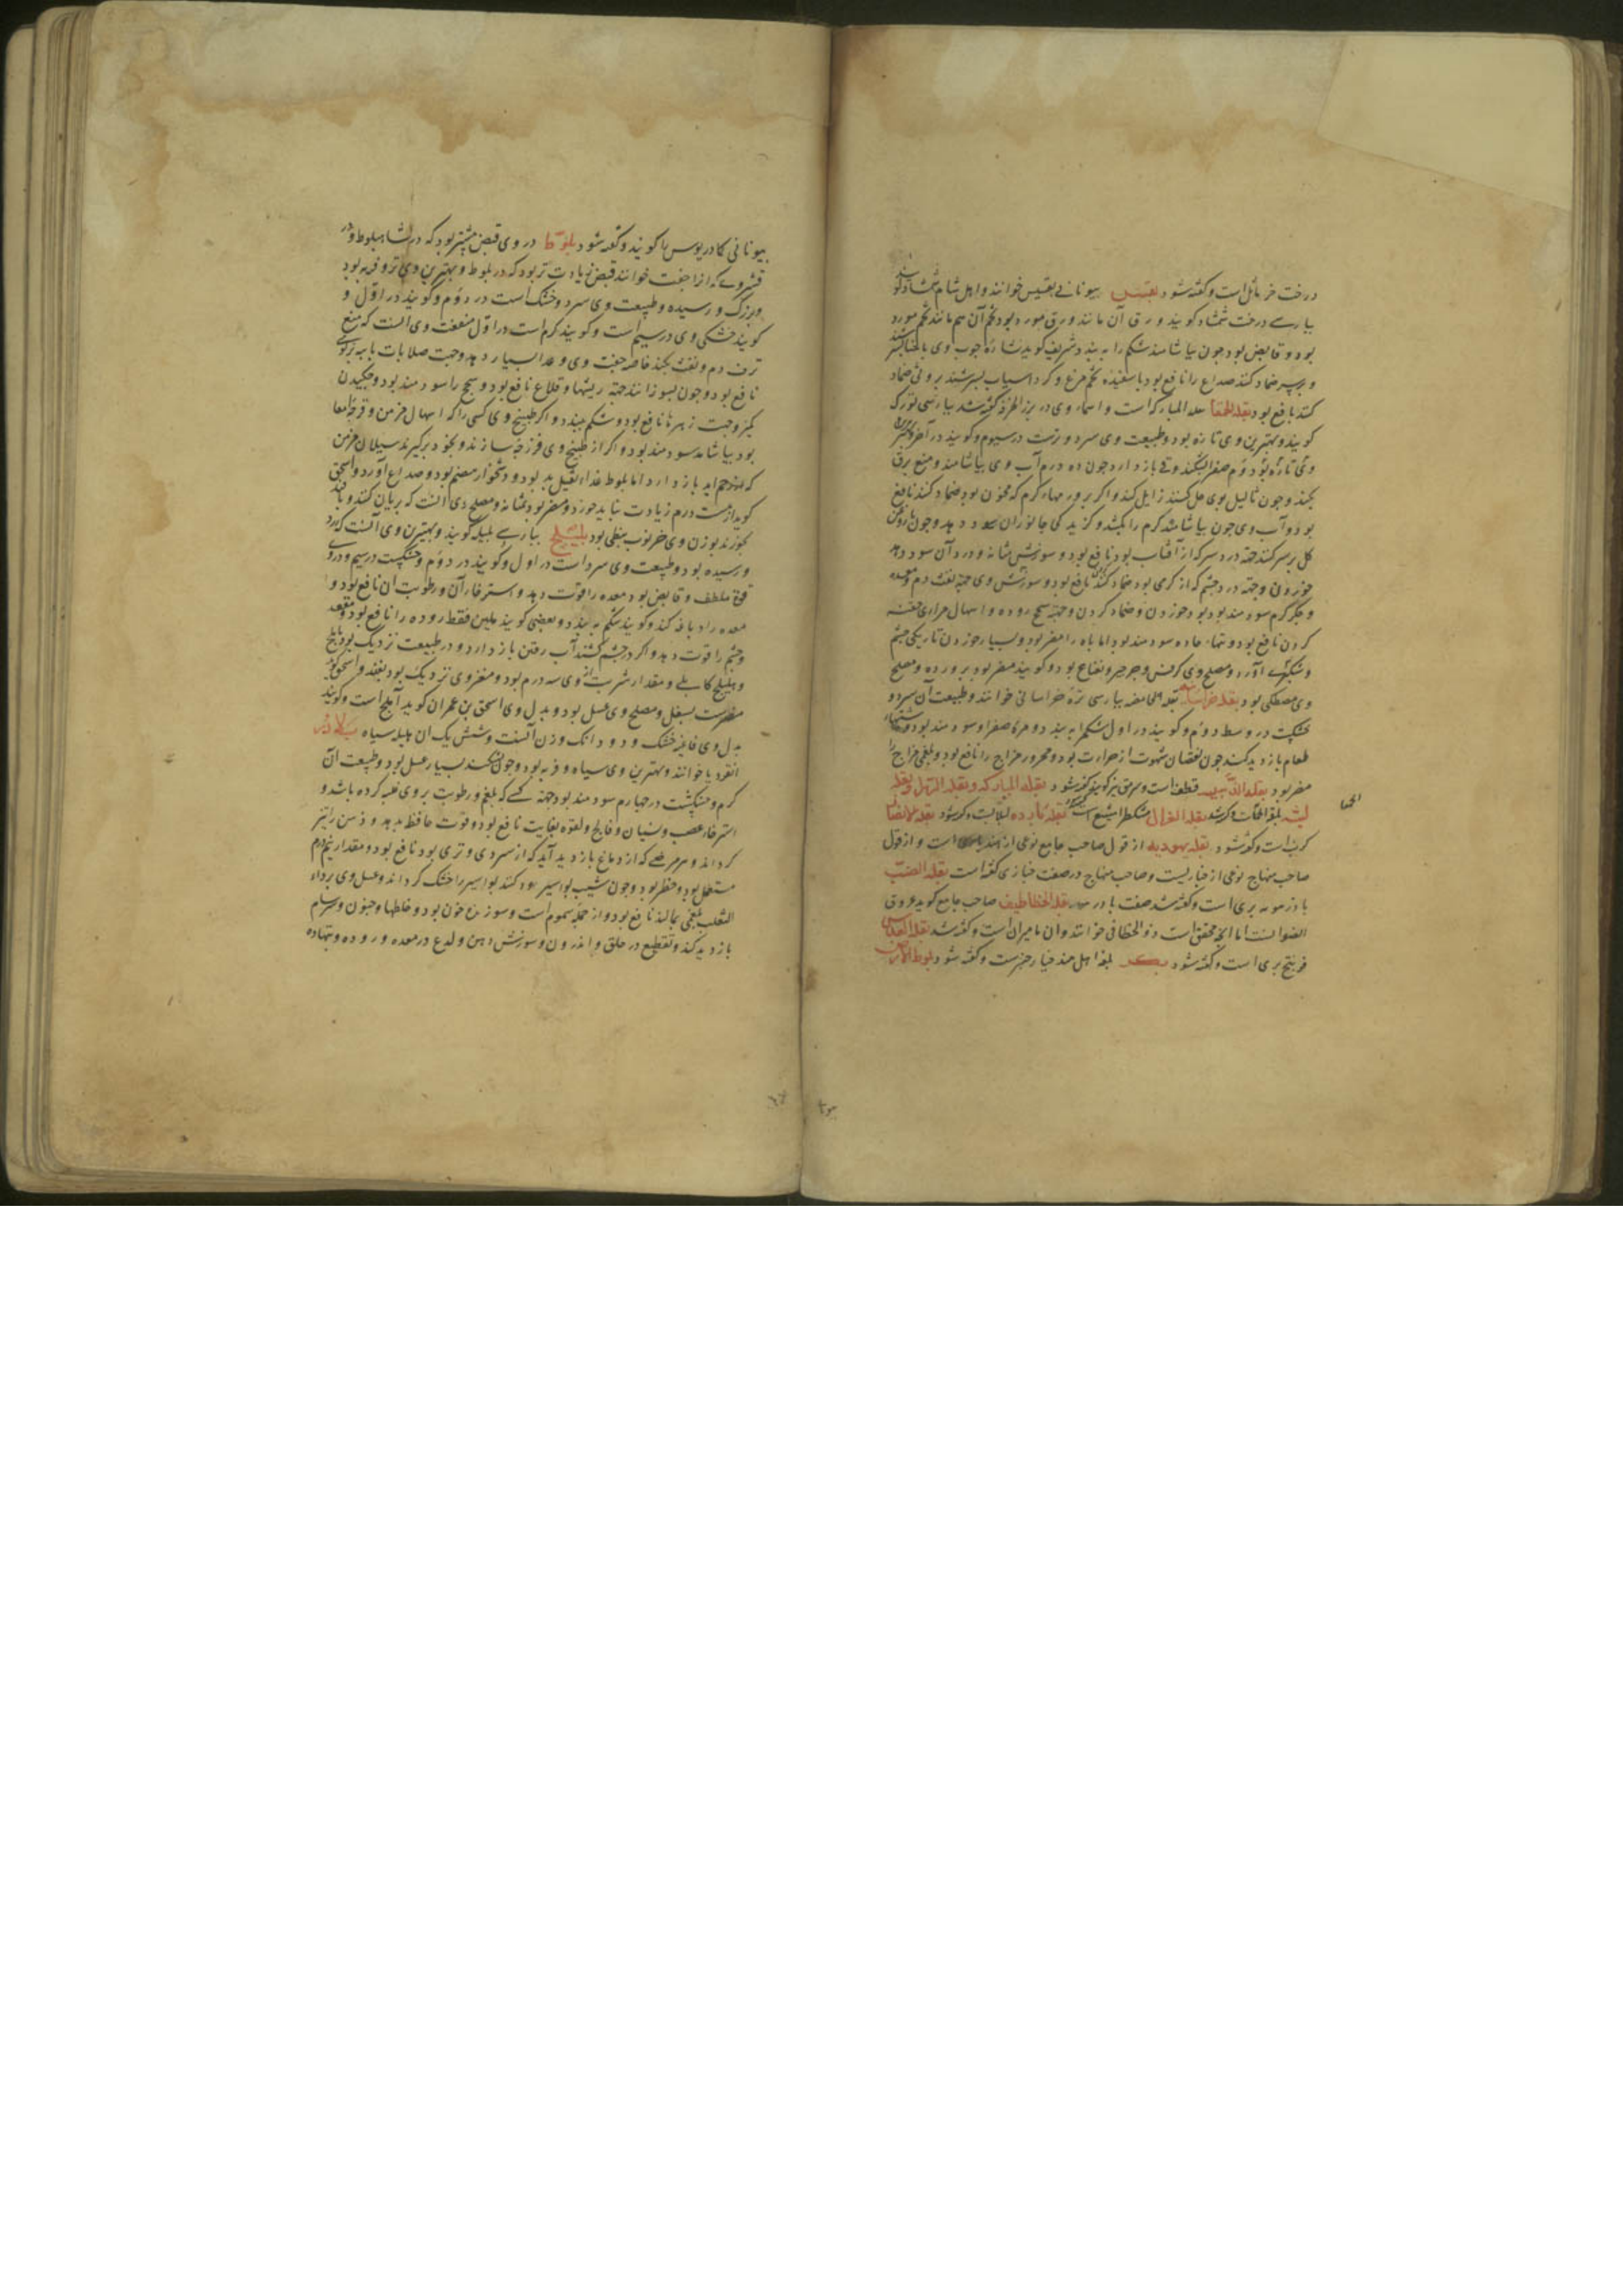 درخت خر مائل است و گفته شود بقسیس بیونانی بقسیس خوانند و اهل شام شمشاد گویند
بپارسی درخت شمشاد گویند و ورق آن مانند ورق مورد بود و تخم آن هم مانند تخم مورد
بود و قابض بود چون بیاشامند شکم را ببندد شریف گوید نشارهٔ چوب وی با حنا بسرشند
و بر سر ضماد کنند صداع را نافع بود با سفیده تخم مرغ و گرد آسیاب بسرشند بر وثی ضماد
کنند نافع بود بقلة الحمقا بقلة المبارکه است و اسماء وی در بزر گفته شد بپارسی تورک
گویند و بهترین وی تازه بود و طبیعت وی سرد و ترست در سیوم و گویند در آخر
وی تازه بود دوم صفرا بشکند و قی باز دارد چون ده درم آب وی بیاشامند و منع برق
بکند و چون ثالیل بوی حل کنند زایل کند و اگر بر ورمهاء گرم که محزن بود ضماد کنند نافع
بود و آب وی چون بیاشامند کرم را بکشد و گزیدگی جانوران سود دهد و چون با روغن
گل بر سر کنند جهة درد سر که از آفتاب بود نافع بود و سوزش مثانه و درد آن سود دهد
خوردن و جهة درد چشم که از گرمی بود ضماد کنند نافع بود و سوزش وی جهة نفث دم و معده
و جگر گرم سودمند بود بود خوردن و ضماد کردن و جهة سحج روده و اسهال مراری حقنه
کردن نافع بود و تبهاء حاده سودمند بود اما باه را مضر بود و بسیار خوردن تاریکی چشم
و شبکوری آورد و مصلح وی کرفس و جرجیر و نعناع بود و گویند مضر بود بروده و مصلح
وی مصطکی بود بقلة خراسانیه بقله حامضه بپارسی ترهٔ خراسانی خوانند و طبیعت آن سرد و
خشکست در وسط دوم و گویند در اول شکم را ببندد و مرهٔ صفرا و سودمند بود و شهاء
طعام بازدید کند چون نقصان شهوت از حرارت بود و محرور مزاج را نافع بود و بلغمی مزاج را
مضر بود بقلة الذهبیه قطف است و سرمق نیز گویند گفته شود بقلة المبارکه و بقلة الزهرا و بقلة
لینه بقلة الحمقا است و گفته شد بقلة الغزال مشکطرامشیع است بقله بارده لبلابست و گفته شود بقلة الانصار
کرنب است و گفته شود بقله یهودیه از قول صاحب جامع نوعی از هندبا است و از قول
صاحب منهاج نوعی از خبازیست و صاحب منهاج در صفت خبازی گفته است بقلة الضب
بادرنبویه بری است و گفته شد صفت بادرنبویه بقلة الخطاطیف صاحب جامع گوید عروق
الصفر است اما آنچه محقق است ذو الخطافی خوانند و آن مامیران است و گفته شد بقلة العدس
فودنج بری است و گفته شود بکسر بلغة اهل هند خیار چنبر است و گفته شود بلوط الارض
الحمقا
بیونانی کادریوس ها گویند و گفته شود بلوط در وی قبض بیشتر بود که در شاهبلوط و در
قشر وی که از آن جفت خوانند قبض زیادت تر بود که در بلوط و بهترین وی تر و فربه بود
و بزرگ و رسیده و طبیعت وی سرد و خشک است در دوم و گویند در اول و
گویند خشکی وی در سیم است و گویند گرم است در اول منفعت وی آنست که منع
نزف دم و نفث بکند خاصه جفت وی و غذا بسیار دهد و جهت صلابات با پیه بزی
نافع بود و چون بسوزانند جهة ریشها و قلاع نافع بود و سحج را سودمند بود و چکیدن
کمیز و جهت زهرها نافع بود و شکم ببندد و اگر طبیخ وی کسی را که اسهال مزمن و قرحهٔ امعا
بود بیاشامد سودمند بود و اگر از طبیخ وی فرزجه سازند و بخود برگیرند سیلان مزمن
که از رحم آید باز دارد اما بلوط غذاء ثقیل بد بود و دشخوار هضم بود و صداع آورد و اسحق
گوید از بیست درم زیادت نباید خورد و مضر بود بمثانه و مصلح وی آنست که بریان کنند و با قند
بخورند بوزن وی خرنوب نبطی بود بلیلج بپارسی بلیله گویند و بهترین وی آنست که زرد
و رسیده بود و طبیعت وی سرد است در اول و گویند در دوم و خشکست در سیم و در وی
قوة ملطف و قابض بود معده را قوت دهد و استرخا آن و رطوبت آن نافع بود و
معده را دباغه کند و گویند شکم ببندد و بعضی گویند ملین فقط روده را نافع بود و مقعد
و چشم را قوت دهد و اگر در چشم کشند آب رفتن باز دارد و در طبیعت نزدیک بود باملج
و هلیلج کابلی و مقدار شربت از وی سه درم بود و مغز وی نزدیک بود بفندق و اسحق گوید
مضرست بسفل و مصلح وی عسل بود و بدل وی اسحق بن عمران گوید آملج است و گویند
بدل وی فاغیه خشک و دو دانگ وزن آنست و شش یک آن هلیله سیاه بلادر
انقردیا خوانند و بهترین وی سیاه و فربه بود و چون بشکنند بسیار عسل بود و طبیعت آن
گرم و خشکست در چهارم سودمند بود جهة کسی که بلغم و رطوبت بر وی غلبه کرده باشد و
استرخاء عصب و نسیان و فالج و لقوه بغایت نافع بود و قوت حافظه بدهد و ذهن را تیز
گرداند و هر مرضی که از دماغ بازدید آید که از سردی و تری بود نافع بود و مقدار نیم درم
مستعمل بود و خطر بود و چون شیب بواسیر دود کنند بواسیر را خشک گرداند و عسل وی بر داء
الثعلب بلغمی بمالند نافع بود و از جمله سموم است و سوزنده خون بود و خلطها و جنون و سرسام
بازدید کند و تقطیع در حلق و اندرون و سوزش دهن و لدع در معده و روده و تبهاء